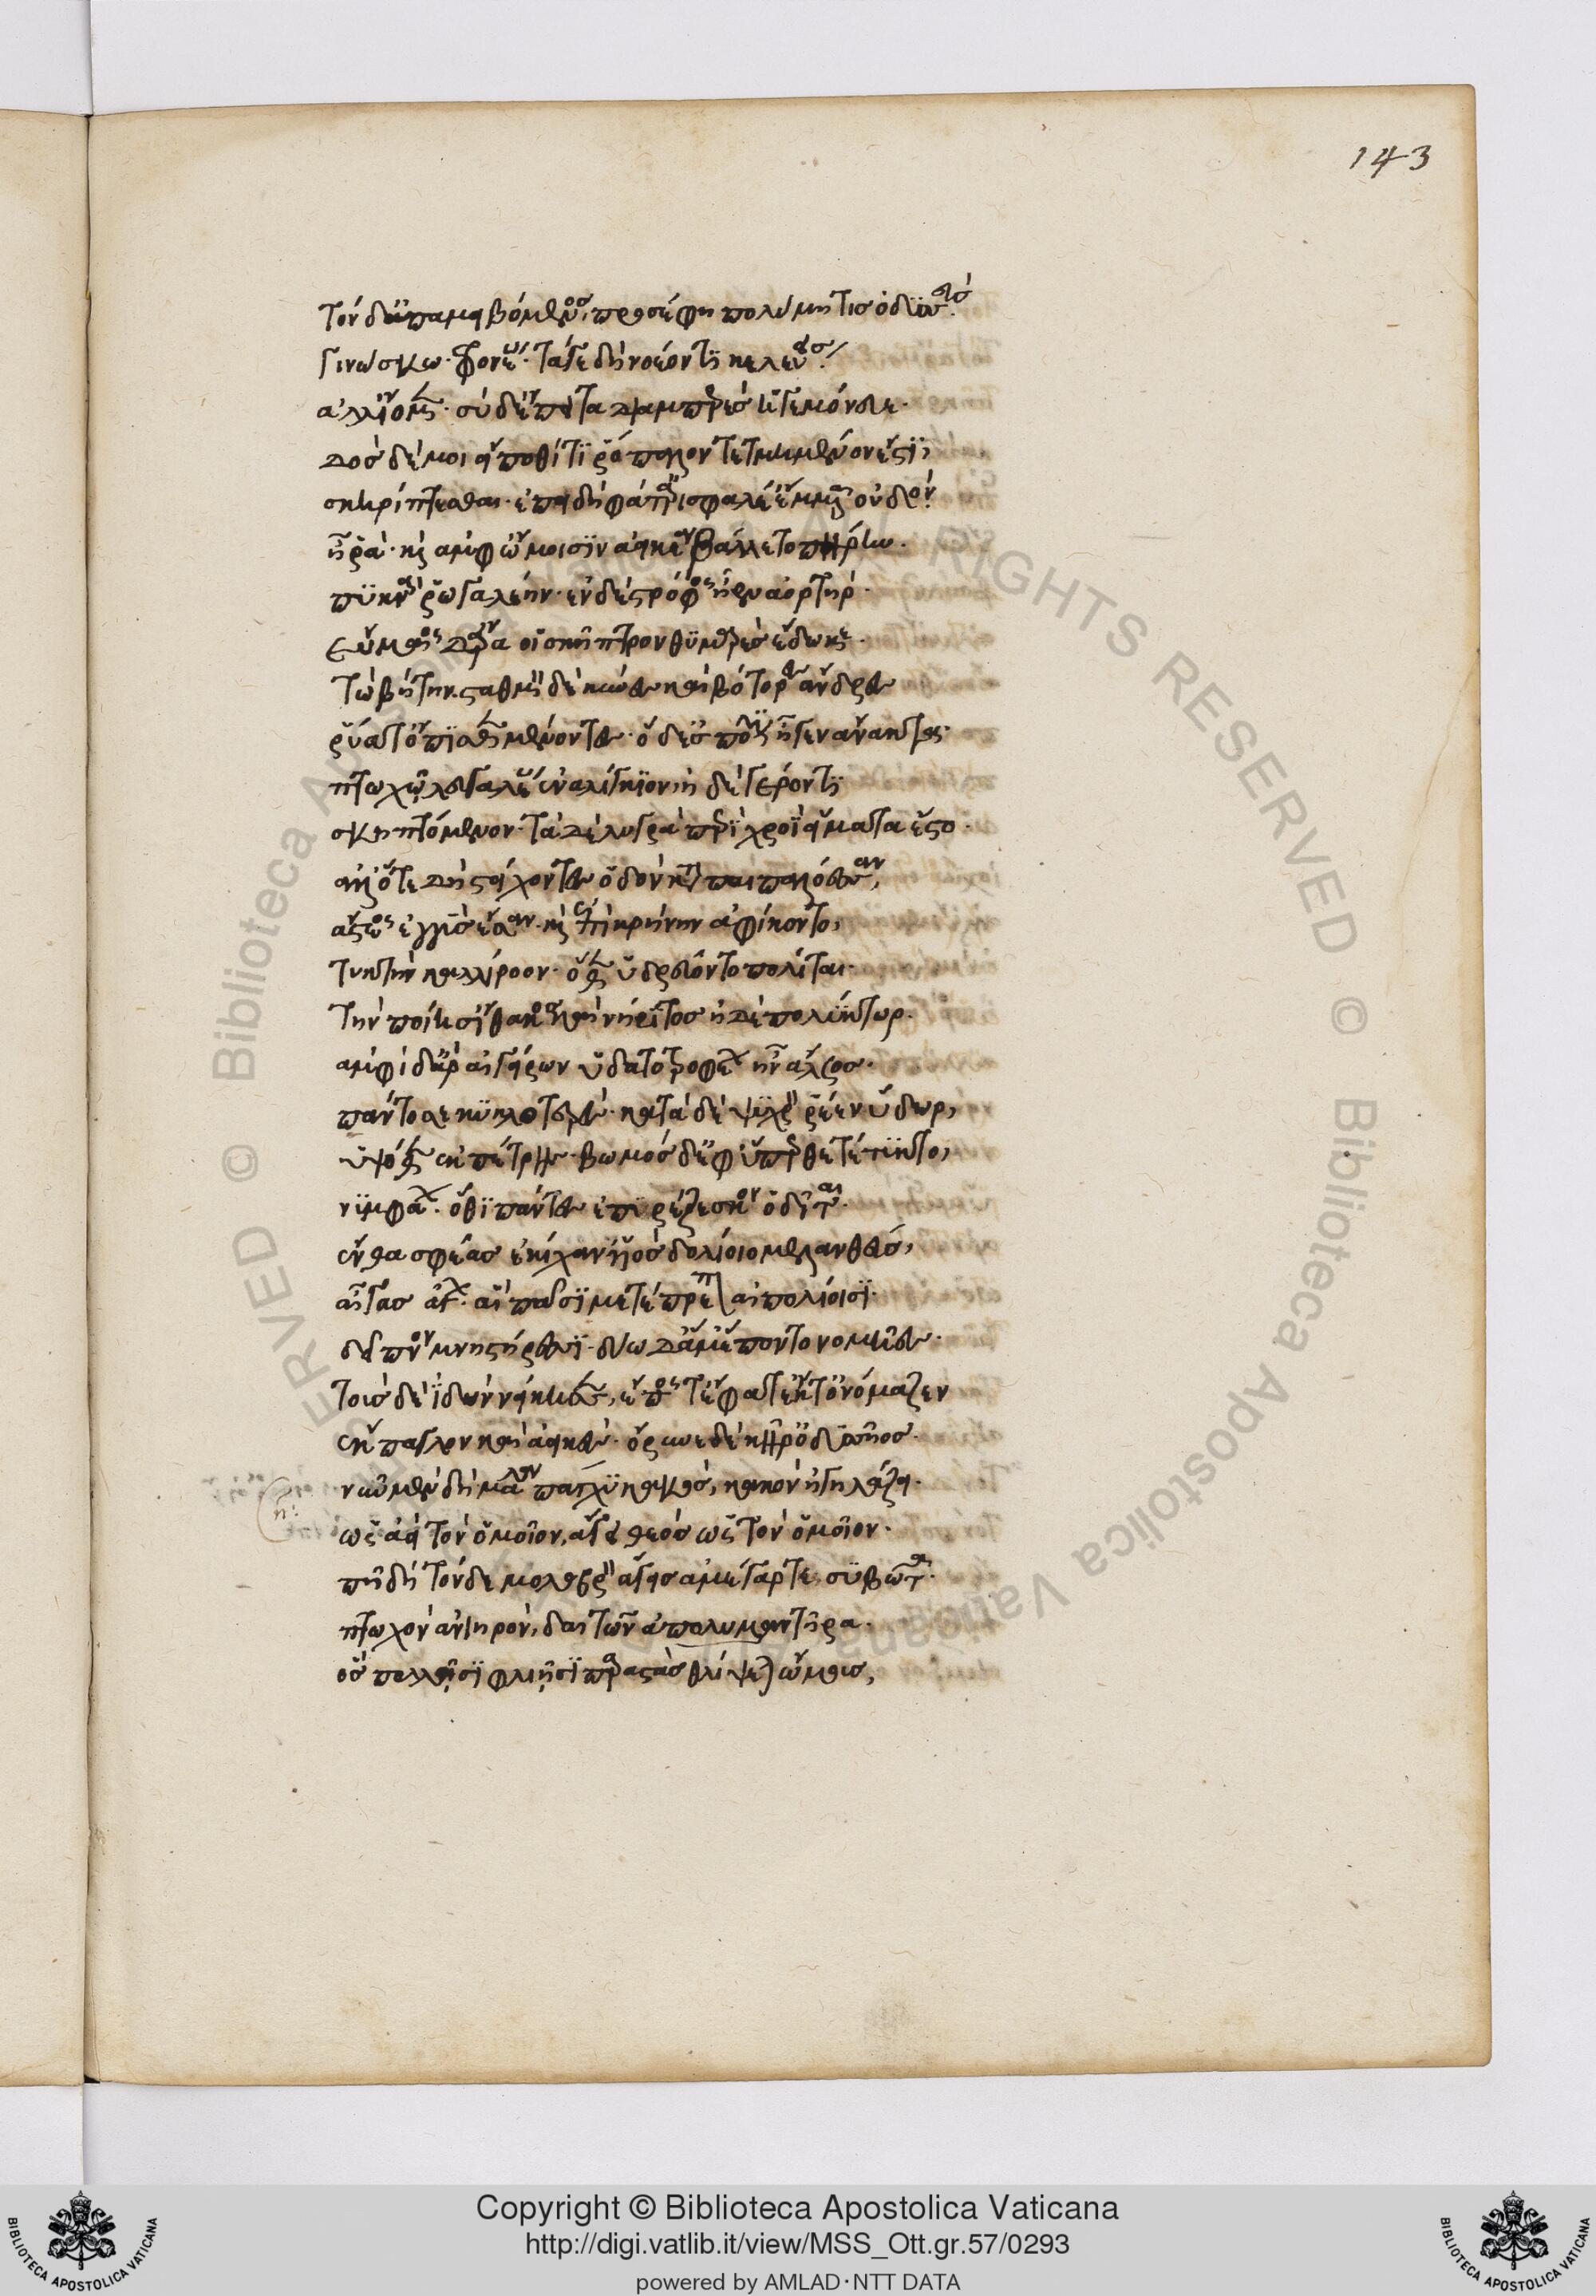 Τὸν δ' ἀπαμειβόμενος προσέφη πολύμητις ὀδυσσεύς.
γινώσκω· φρονέω· τάγε δὴ νοέοντϊ κελεύεις.
ἀλλ' ἴομεν· σὺ δ' ἔπειτα διαμπερὲς ἡγεμόνευε.
δὸς δέ μοι εἴ ποθί τϊ ῥόπαλον τετμημένον ἐστϊ,
σκηρίπτεσθαι· ἐπειδὴ φάτ' ἀρισφαλέ' ἔμμεναι οὐδόν.
ἦ ῥα· καὶ ἀμφ' ὤμοισϊν ἀεικέα βάλλετο πήρην.
πϋκνὰ ῥωγαλέην· ἐν δὲ στρόφος ἦεν ἀορτήρ.
εὔμαιος δ' ἄρα οἱ σκῆπτρον θϋμαρὲς ἔδωκε.
τὼ βήτην. σταθμὸν δὲ κύνες καὶ βότορες ἄνδρες
ῥύατ' ὄπϊσθεν μένοντες· ὁ δ' ἐς πόλϊν ἦγεν ἄνακτα.
πτωχῷ λευγαλέῳ ἐναλίγκϊον ἠδὲ γέροντϊ
σκηπτόμενον· τὰ δὲ λυγρὰ περϊ χροῒ εἵματα ἕστο.
ἀλλ' ὅτε δὴ στείχοντες ὁδὸν κάτα παιπαλόεσσαν,
ἄστεος ἐγγὺς ἔσαν· καὶ ἐπὶ κρήνην ἀφίκοντο,
τυκτὴν καλλίροον· ὅθεν ὑδρεύοντο πολῖται.
τὴν ποίησ' ἴθακος καὶ νήρϊτος ἠδὲ πολύκτωρ.
ἀμφὶ δ' ἄρ' αἰγείρων ὑδατοτροφέων ἦν ἄλσος.
πάντοσε κϋκλοτερὲς· κατὰ δὲ ψϋχρὸν ῥέεν ὕδωρ,
ὑψόθεν ἐκ πέτρης· βωμὸς δ' ἐφύπερθε τέτϋκτο,
νϋμφάων· ὅθϊ πάντες ἐπϊρρέζεσκον ὁδῖται.
ἔνθα σφέας ἐκίχαν ϋἱὸς δολίοιο μελανθεὺς,
αἶγας ἄγων· αἳ πᾶσϊ μετέπρεπον αἰπολίοισϊ.
δεῖπνον μνηστήρεσσϊ· δύω δ' ἅμ' ἕποντο νομῆες.
τοὺς δὲ ἰδὼν νείκεσεν, ἔπος τ' ἔφατ' ἔκ τ' ὀνόμαζεν
ἔκπαγλον καὶ ἀεικὲς· ὄρινε δὲ κῆρ ὀδϋσῆος.
νῦν μὲν δὴ μάλα πάγχϋ κακὸς, κακὸν ἡγηλάζει.
ὡς ἀεὶ τὸν ὁμοῖον, ἄγει θεὸς ὡς τὸν ὁμοῖον.
πῆ δὴ τόνδε μολοβρὸν ἄγεις ἀμέγαρτε, σϋβῶτα.
πτωχὸν ἀνιηρὸν, δαιτῶν ἀπολυμαντῆρα.
ὃς πολλῇσϊ φλιῇσϊ παραστὰς θλίψεται ὤμους,
143